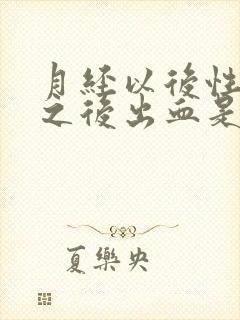 月経以後性
之後出血是
夏樂央